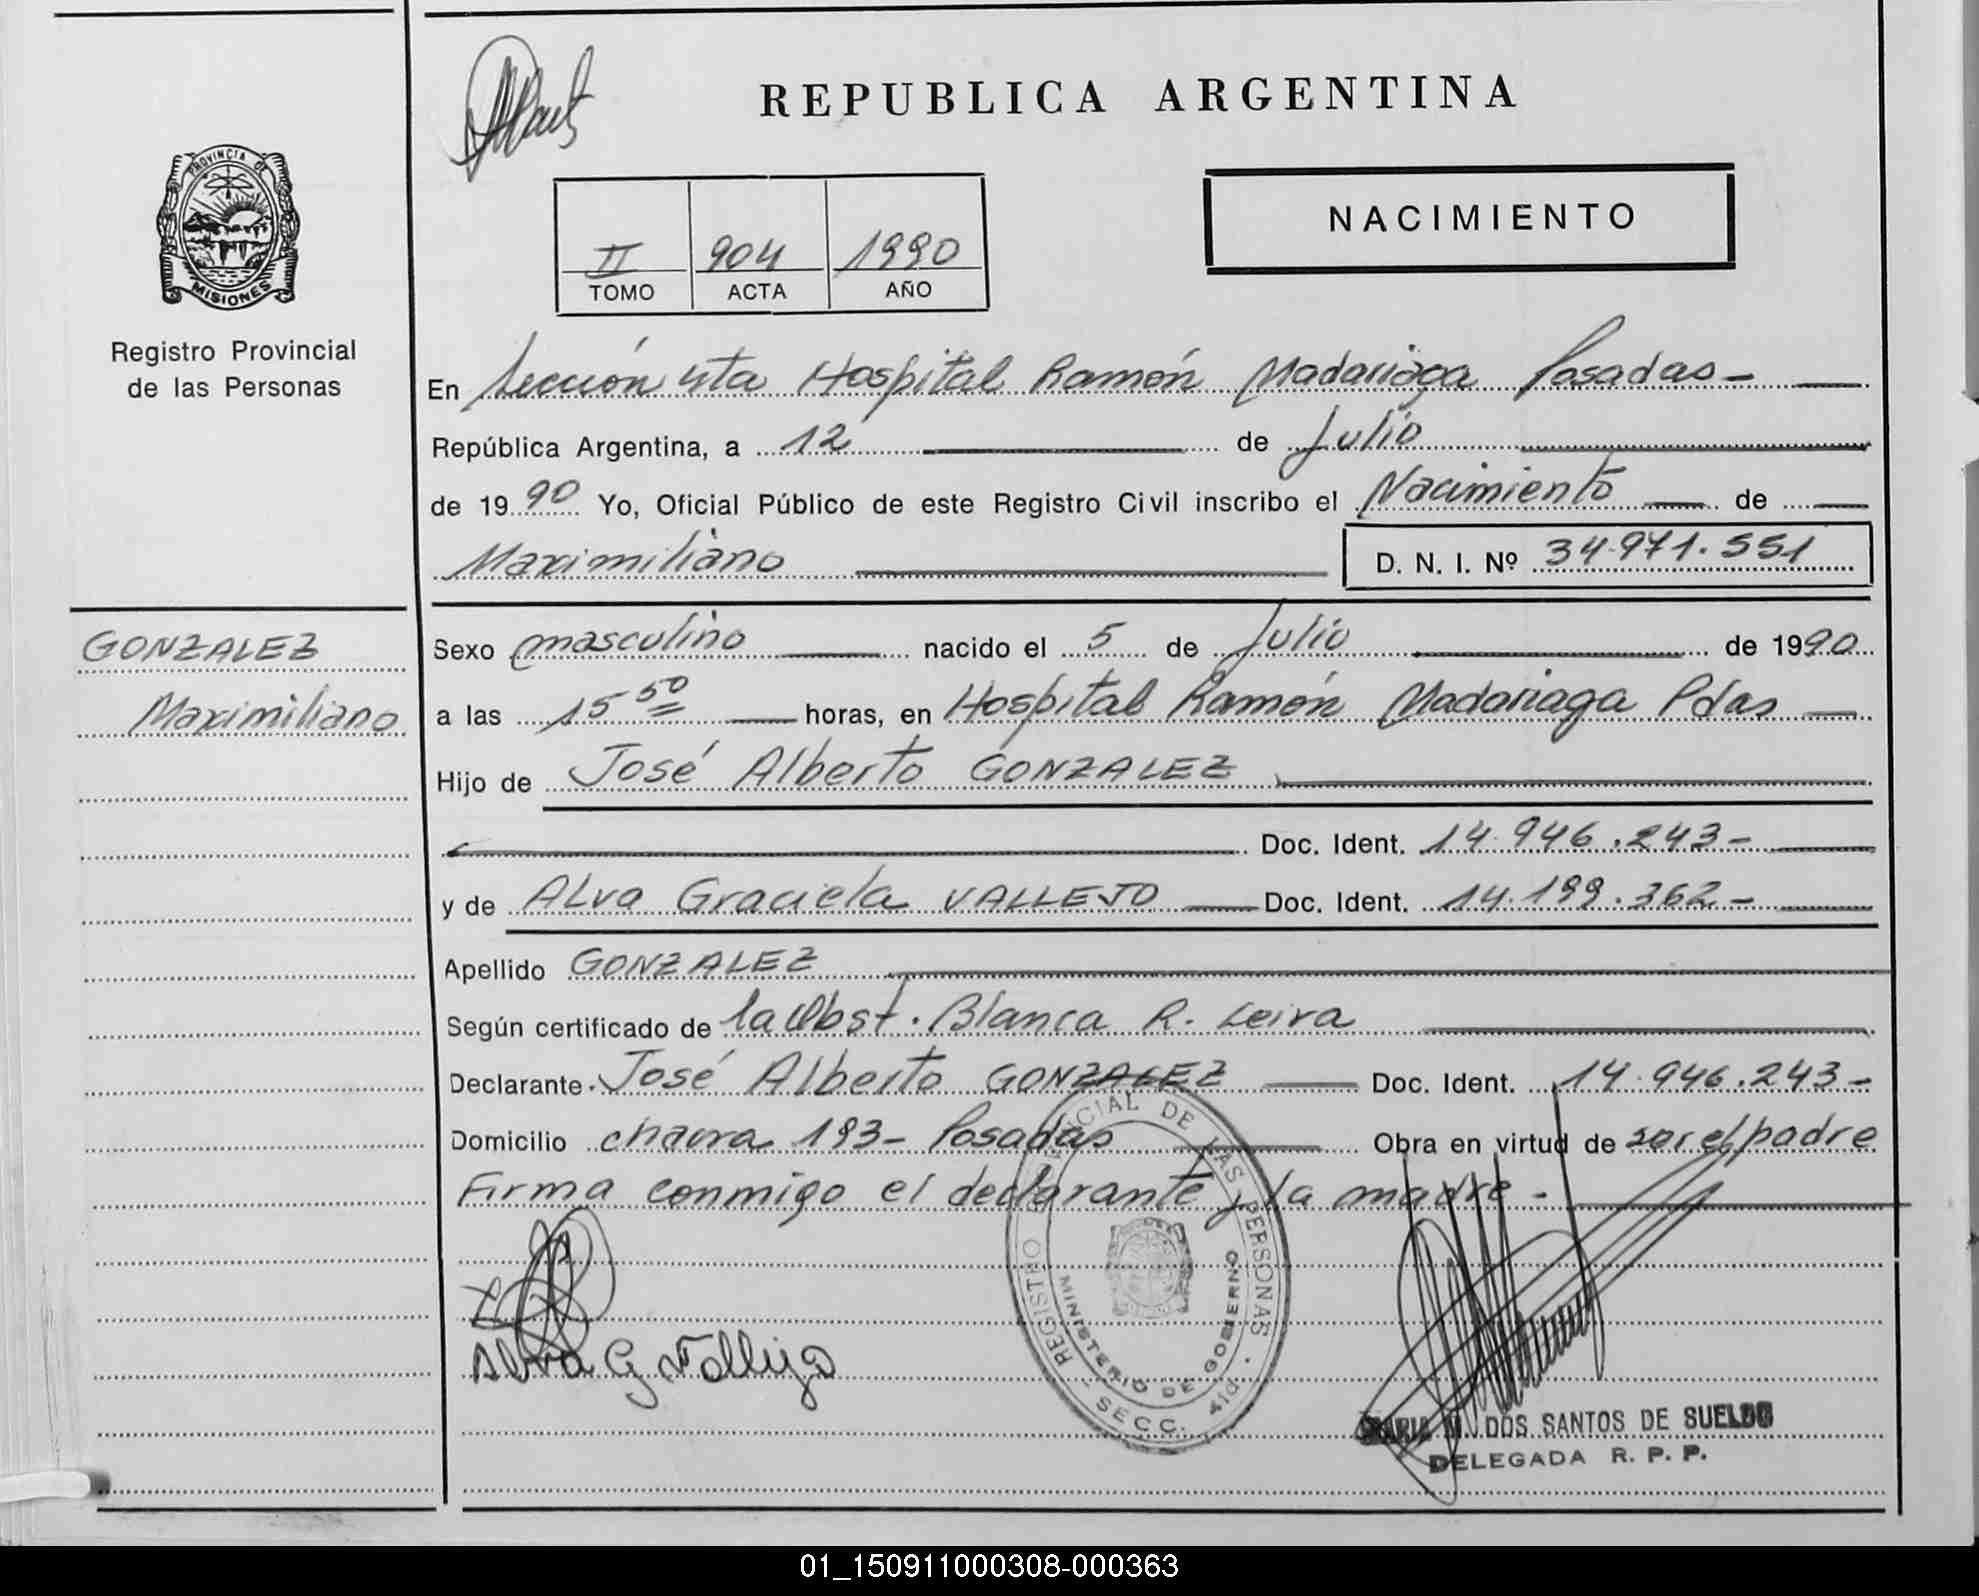 REPUBLICA ARGENTINA
PROVINCIA DE
MISIONES
Registro Provincial
de las Personas
NACIMIENTO
II 904 1990
TOMO ACTA AÑO
En Sección 4ta Hospital Ramón Madariaga Posadas -
República Argentina, a 12 de Julio
de 1990 Yo, Oficial Público de este Registro Civil inscribo el Nacimiento de
Maximiliano D. N. I. Nº 34.971.551
GONZALEZ
Maximiliano
Sexo masculino nacido el 5 de Julio de 1990
a las 15 50 horas, en Hospital Ramón Madariaga Pdas
Hijo de José Alberto GONZALEZ
Doc. Ident. 14.946.243-
y de ALva Graciela VALLEJO Doc. Ident. 14.199.362-
Apellido GONZALEZ
Según certificado de la Obst. Blanca R. Leiva
Declarante José Alberto GONZALEZ Doc. Ident. 14.946.243-
Domicilio 193- Posadas Obra en virtud de ser el padre
Firma conmigo el declarante y la madre -
Alva G Vallejo
REGISTRO PROVINCIAL DE LAS PERSONAS
MINISTERIO DE GOBIERNO
- SECC. 4ta. -
MARIA M. DOS SANTOS DE SUELDO
DELEGADA R. P. P.
01_150911000308-000363